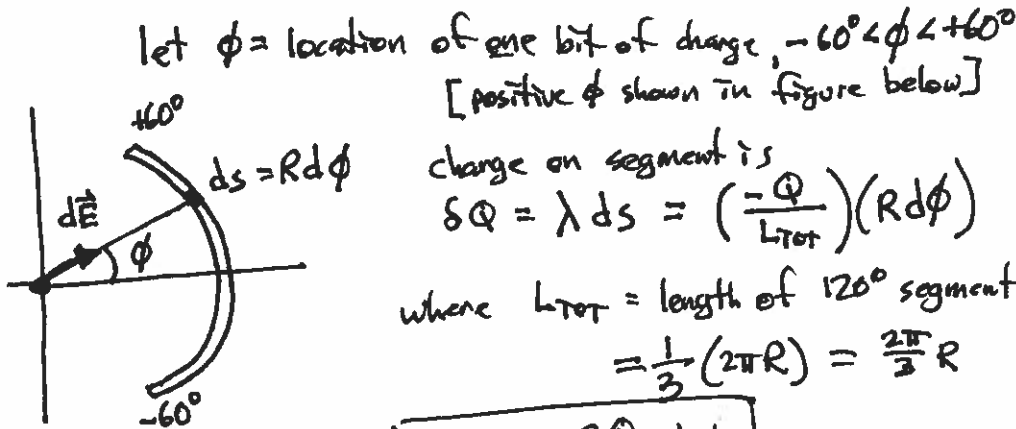 let ϕ = location of one bit of charge, -60° < ϕ < +60°
[positive ϕ shown in figure below]
+60°
ds = Rdϕ
charge on segment is
dE⃗
ϕ
δQ = λ ds = (-Q/L_TOT)(Rdϕ)
where L_TOT = length of 120° segment
= 1/3 (2πR) = 2π/3 R
-60°